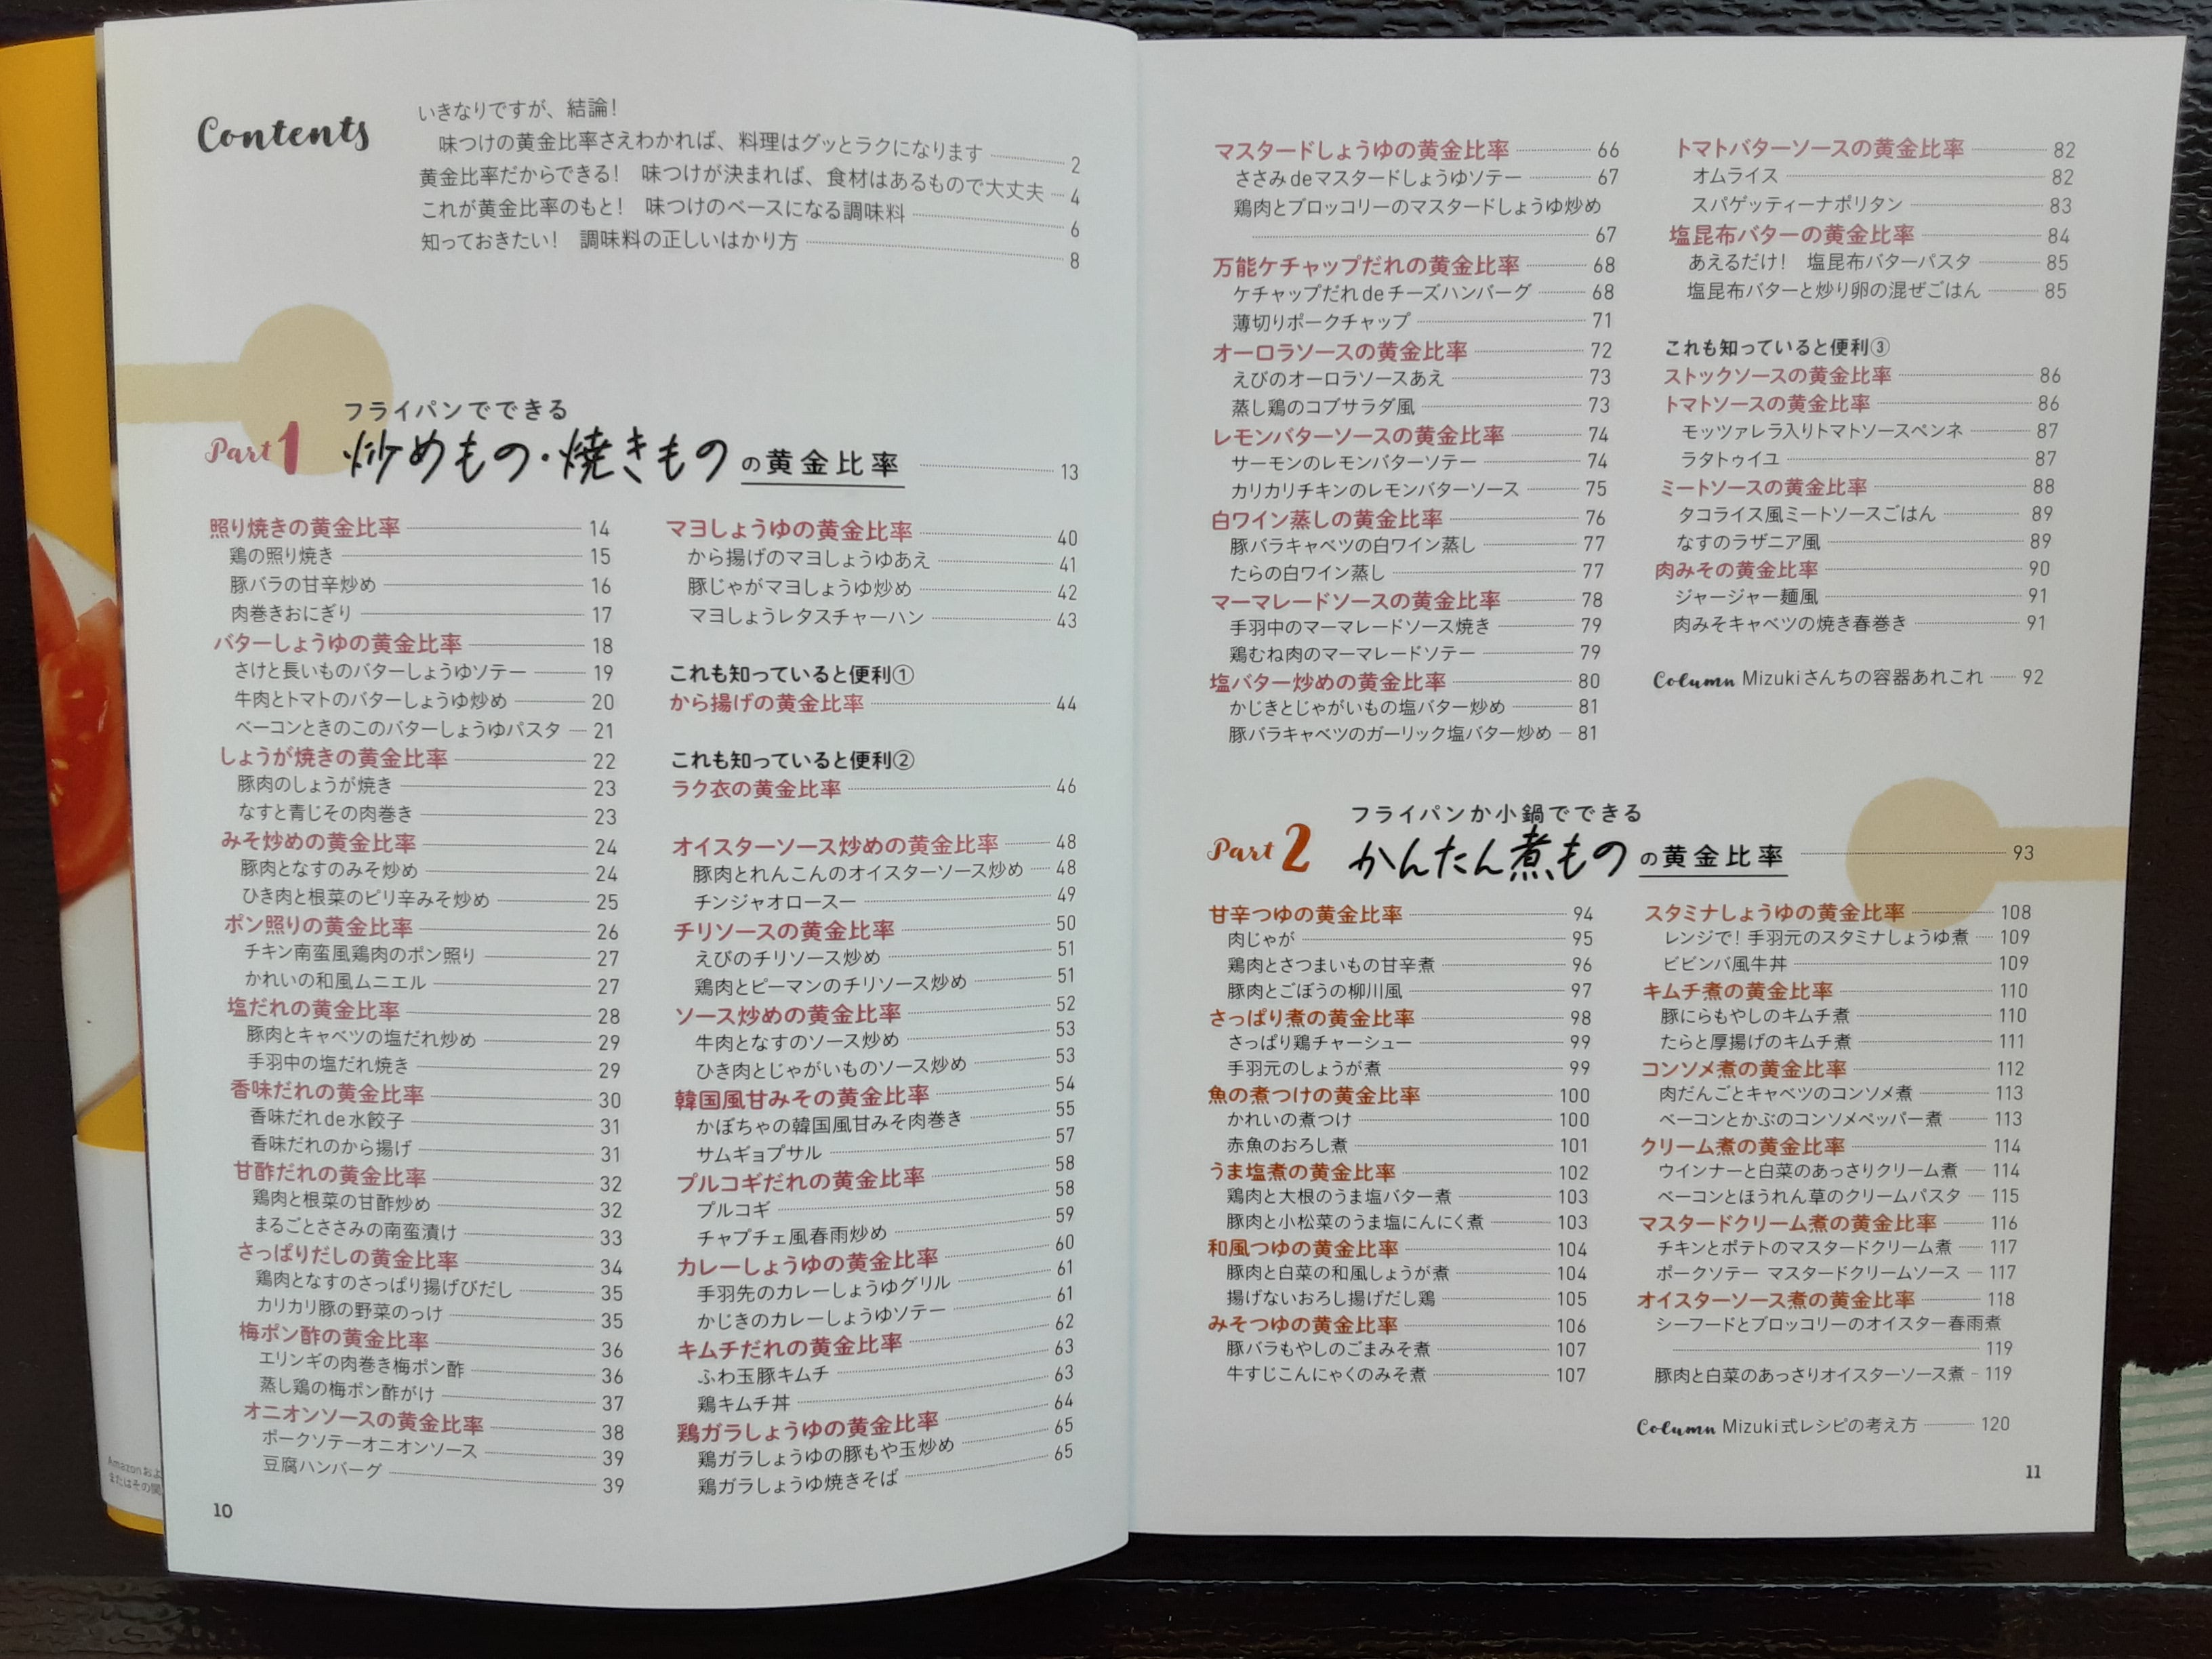 Contents
いきなりですが、結論!
味つけの黄金比率さえわかれば、料理はグッとラクになります 2
黄金比率だからできる! 味つけが決まれば、食材はあるもので大丈夫 4
これが黄金比率のもと! 味つけのベースになる調味料 6
知っておきたい! 調味料の正しいはかり方 8
フライパンでできる
Part 1 炒めもの・焼きものの黄金比率 13
照り焼きの黄金比率 14
鶏の照り焼き 15
豚バラの甘辛炒め 16
肉巻きおにぎり 17
バターしょうゆの黄金比率 18
さけと長いものバターしょうゆソテー 19
牛肉とトマトのバターしょうゆ炒め 20
ベーコンときのこのバターしょうゆパスタ 21
しょうが焼きの黄金比率 22
豚肉のしょうが焼き 23
なすと青じその肉巻き 23
みそ炒めの黄金比率 24
豚肉となすのみそ炒め 24
ひき肉と根菜のピリ辛みそ炒め 25
ポン照りの黄金比率 26
チキン南蛮風鶏肉のポン照り 27
かれいの和風ムニエル 27
塩だれの黄金比率 28
豚肉とキャベツの塩だれ炒め 29
手羽中の塩だれ焼き 29
香味だれの黄金比率 30
香味だれde水餃子 31
香味だれのから揚げ 31
甘酢だれの黄金比率 32
鶏肉と根菜の甘酢炒め 32
まるごとささみの南蛮漬け 33
さっぱりだしの黄金比率 34
鶏肉となすのさっぱり揚げびだし 35
カリカリ豚の野菜のっけ 35
梅ポン酢の黄金比率 36
エリンギの肉巻き梅ポン酢 36
蒸し鶏の梅ポン酢がけ 37
オニオンソースの黄金比率 38
ポークソテーオニオンソース 39
豆腐ハンバーグ 39
マヨしょうゆの黄金比率 40
から揚げのマヨしょうゆあえ 41
豚じゃがマヨしょうゆ炒め 42
マヨしょうレタスチャーハン 43
これも知っていると便利①
から揚げの黄金比率 44
これも知っていると便利②
ラク衣の黄金比率 46
オイスターソース炒めの黄金比率 48
豚肉とれんこんのオイスターソース炒め 48
チンジャオロースー 49
チリソースの黄金比率 50
えびのチリソース炒め 51
鶏肉とピーマンのチリソース炒め 51
ソース炒めの黄金比率 52
牛肉となすのソース炒め 53
ひき肉とじゃがいものソース炒め 53
韓国風甘みその黄金比率 54
かぼちゃの韓国風甘みそ肉巻き 55
サムギョプサル 57
プルコギだれの黄金比率 58
プルコギ 58
チャプチェ風春雨炒め 59
カレーしょうゆの黄金比率 60
手羽先のカレーしょうゆグリル 61
かじきのカレーしょうゆソテー 61
キムチだれの黄金比率 62
ふわ玉豚キムチ 63
鶏キムチ丼 63
鶏ガラしょうゆの黄金比率 64
鶏ガラしょうゆの豚もや玉炒め 65
鶏ガラしょうゆ焼きそば 65
10
Amazonおよ
またはその関
マスタードしょうゆの黄金比率 66
ささみdeマスタードしょうゆソテー 67
鶏肉とブロッコリーのマスタードしょうゆ炒め
67
万能ケチャップだれの黄金比率 68
ケチャップだれdeチーズハンバーグ 68
薄切りポークチャップ 71
オーロラソースの黄金比率 72
えびのオーロラソースあえ 73
蒸し鶏のコブサラダ風 73
レモンバターソースの黄金比率 74
サーモンのレモンバターソテー 74
カリカリチキンのレモンバターソース 75
白ワイン蒸しの黄金比率 76
豚バラキャベツの白ワイン蒸し 77
たらの白ワイン蒸し 77
マーマレードソースの黄金比率 78
手羽中のマーマレードソース焼き 79
鶏むね肉のマーマレードソテー 79
塩バター炒めの黄金比率 80
かじきとじゃがいもの塩バター炒め 81
豚バラキャベツのガーリック塩バター炒め 81
トマトバターソースの黄金比率 82
オムライス 82
スパゲッティーナポリタン 83
塩昆布バターの黄金比率 84
あえるだけ! 塩昆布バターパスタ 85
塩昆布バターと炒り卵の混ぜごはん 85
これも知っていると便利③
ストックソースの黄金比率 86
トマトソースの黄金比率 86
モッツァレラ入りトマトソースペンネ 87
ラタトゥイユ 87
ミートソースの黄金比率 88
タコライス風ミートソースごはん 89
なすのラザニア風 89
肉みその黄金比率 90
ジャージャー麺風 91
肉みそキャベツの焼き春巻き 91
Column Mizukiさんちの容器あれこれ 92
フライパンか小鍋でできる
Part 2 かんたん煮ものの黄金比率 93
甘辛つゆの黄金比率 94
肉じゃが 95
鶏肉とさつまいもの甘辛煮 96
豚肉とごぼうの柳川風 97
さっぱり煮の黄金比率 98
さっぱり鶏チャーシュー 99
手羽元のしょうが煮 99
魚の煮つけの黄金比率 100
かれいの煮つけ 100
赤魚のおろし煮 101
うま塩煮の黄金比率 102
鶏肉と大根のうま塩バター煮 103
豚肉と小松菜のうま塩にんにく煮 103
和風つゆの黄金比率 104
豚肉と白菜の和風しょうが煮 104
揚げないおろし揚げだし鶏 105
みそつゆの黄金比率 106
豚バラもやしのごまみそ煮 107
牛すじこんにゃくのみそ煮 107
スタミナしょうゆの黄金比率 108
レンジで! 手羽元のスタミナしょうゆ煮 109
ビビンバ風牛丼 109
キムチ煮の黄金比率 110
豚にらもやしのキムチ煮 110
たらと厚揚げのキムチ煮 111
コンソメ煮の黄金比率 112
肉だんごとキャベツのコンソメ煮 113
ベーコンとかぶのコンソメペッパー煮 113
クリーム煮の黄金比率 114
ウインナーと白菜のあっさりクリーム煮 114
ベーコンとほうれん草のクリームパスタ 115
マスタードクリーム煮の黄金比率 116
チキンとポテトのマスタードクリーム煮 117
ポークソテー マスタードクリームソース 117
オイスターソース煮の黄金比率 118
シーフードとブロッコリーのオイスター春雨煮
119
豚肉と白菜のあっさりオイスターソース煮 119
Column Mizuki式レシピの考え方 120
11